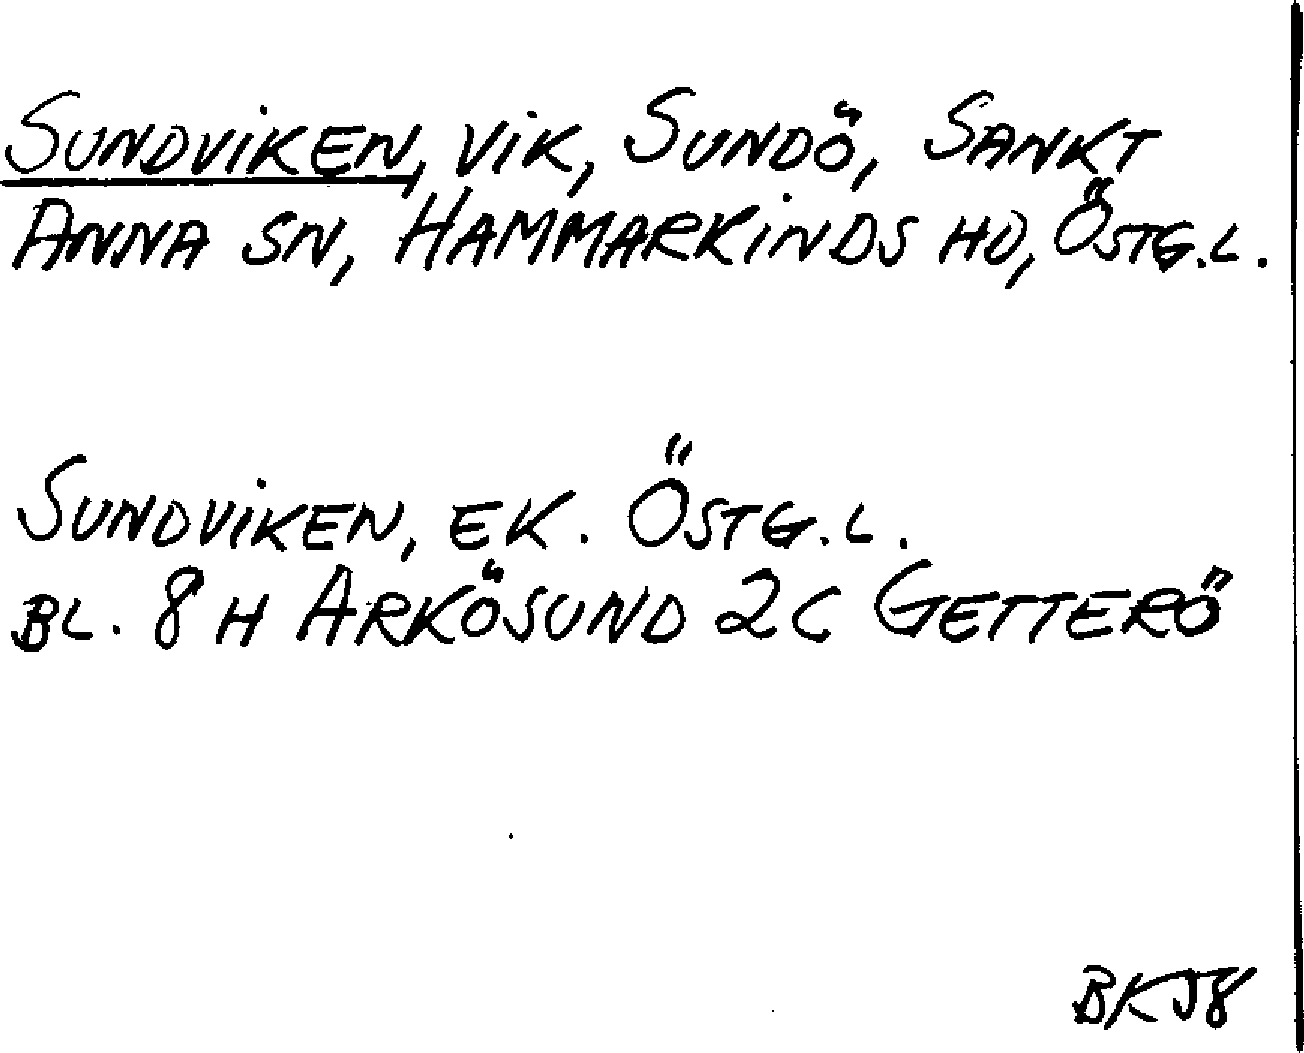 SUNDVIKEN, VIK, SUNDÖ, SANKT
ANNA SN, HAMMARKINDS HD, ÖSTG.L.
SUNDVIKEN, EK. ÖSTG.L.
BL. 8 H ARKÖSUND 2 C GETTERÖ